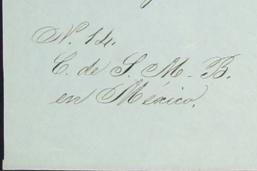 N. 14.
C. de S. M. B.
en México.